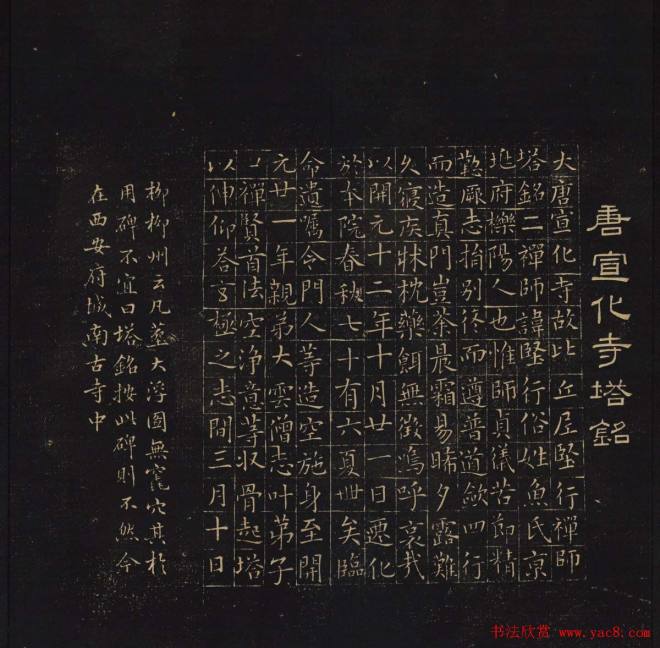 唐宣化寺塔銘
大唐宣化寺故比丘尼堅行禪師
塔銘二禪師諱堅行俗姓魚氏京
兆府櫟陽人也惟師貞儀苦節精
懃厥志捐別修而遵普道欽四行
而造真門豈荼晨霜易晞夕露難
久寢疾牀枕藥餌無徵嗚呼哀哉
以開元十二年十月廿一日遷化
於本院春秋七十有六夏卌矣臨
命遺囑令門人等造空施身至開
元廿一年親弟大雲僧志叶弟子
二禪賢首法空净意等收骨起塔
以伸仰荅極之志閏三月十日
柳柳州云凡葬大浮圖無竁穴其於
用碑不宜曰塔銘按此碑則不然今
在西安府城南古寺中
书法欣赏 www.yac8.com